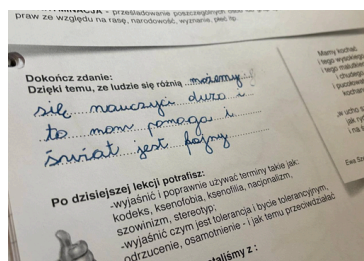 DYSKRYMINACJA - prześladowanie poszczególnych osób
praw ze względu na rasę, narodowość, wyznanie, płeć itp.
Dokończ zdanie:
Dzięki temu, że ludzie się różnią możemy
się nauczyć dużo i
to nam pomaga i
świat jest fajny
Po dzisiejszej lekcji potrafisz:
-wyjaśnić i poprawnie używać terminy takie jak:
kodeks, ksenofobia, ksenofilia, nacjonalizm,
szowinizm, stereotyp;
-wyjaśnić czym jest tolerancja i bycie tolerancyjnym,
odrzucenie, osamotnienie - i jak temu przeciwdziałać
Mamy kochać
i tego wysokiego
i tego malutkie
i chudego
i pucołowat
kochan
Ewa Sz